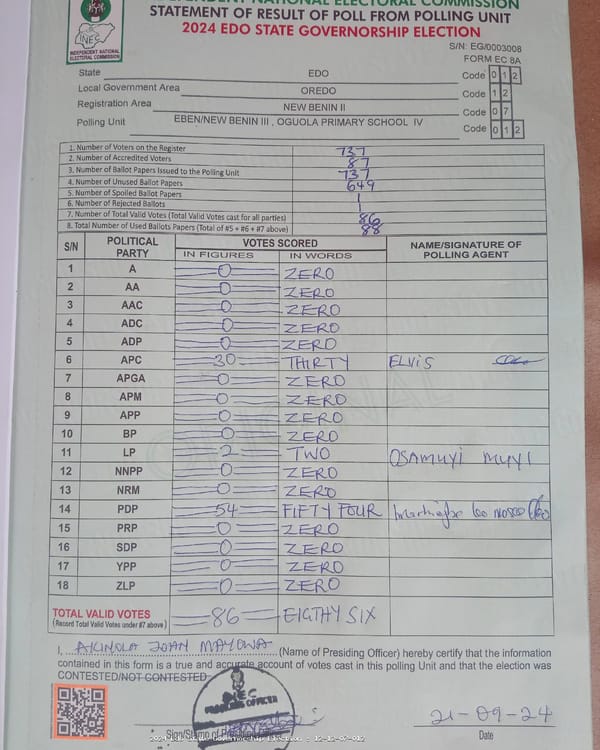 INDEPENDENT NATIONAL ELECTORAL COMMISSION
STATEMENT OF RESULT OF POLL FROM POLLING UNIT
2024 EDO STATE GOVERNORSHIP ELECTION
INEC
INDEPENDENT NATIONAL
ELECTORAL COMMISSION
S/N: EG/0003008
FORM EC 8A
State EDO Code 0 1 2
Local Government Area OREDO Code 1 2
Registration Area NEW BENIN II Code 0 7
Polling Unit EBEN/NEW BENIN III , OGUOLA PRIMARY SCHOOL IV Code 0 1 2
1. Number of Voters on the Register 737
2. Number of Accredited Voters 87
3. Number of Ballot Papers Issued to the Polling Unit 737
4. Number of Unused Ballot Papers 649
5. Number of Spoiled Ballot Papers 1
6. Number of Rejected Ballots 1
7. Number of Total Valid Votes (Total Valid Votes cast for all parties) 86
8. Total Number of Used Ballots Papers (Total of #5 + #6 + #7 above) 88
S/N POLITICAL PARTY VOTES SCORED NAME/SIGNATURE OF POLLING AGENT
IN FIGURES IN WORDS
1 A 0 ZERO
2 AA 0 ZERO
3 AAC 0 ZERO
4 ADC 0 ZERO
5 ADP 0 ZERO
6 APC 30 THIRTY ELVIS
7 APGA 0 ZERO
8 APM 0 ZERO
9 APP 0 ZERO
10 BP 0 ZERO
11 LP 2 TWO OSAMUYI MUYI
12 NNPP 0 ZERO
13 NRM 0 ZERO
14 PDP 54 FIFTY FOUR
15 PRP 0 ZERO
16 SDP 0 ZERO
17 YPP 0 ZERO
18 ZLP 0 ZERO
TOTAL VALID VOTES 86 EIGTHY SIX
(Record Total Valid Votes under #7 above)
I, AKINOLA JOAN MAYOWA (Name of Presiding Officer) hereby certify that the information
contained in this form is a true and accurate account of votes cast in this polling Unit and that the election was
CONTESTED/NOT CONTESTED
INEC
PRESIDING OFFICER
21-09-24
Sign/Stamp of
Date